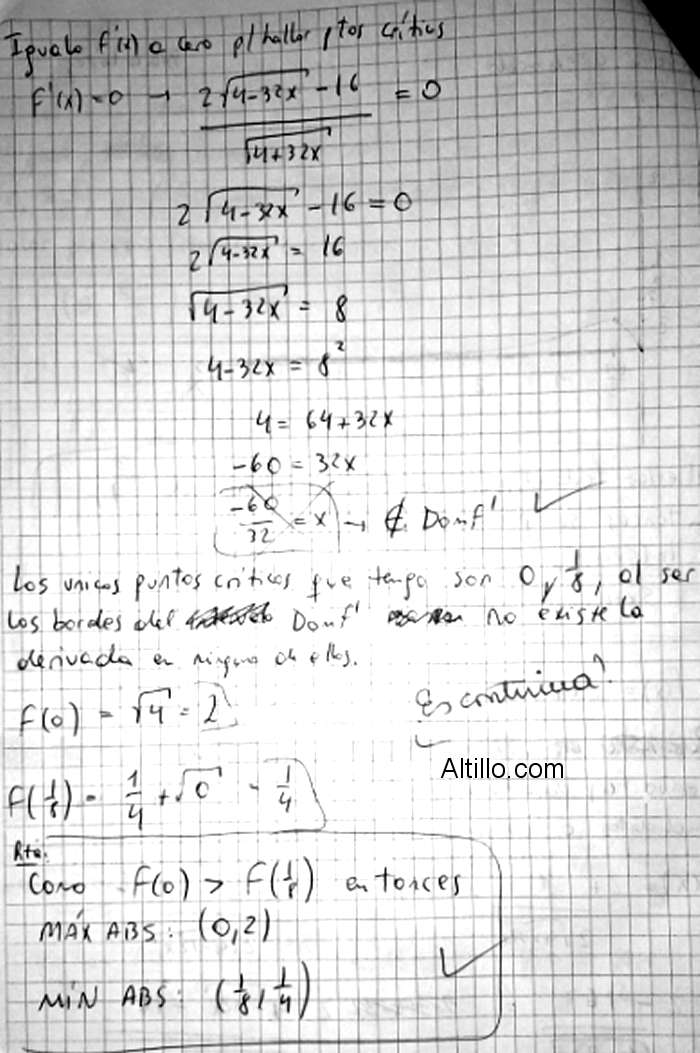 Igualo f'(x) a cero p/ hallar ptos críticos
F'(x)=0 → (2√(4-32x) - 16) / √(4+32x) = 0
2√(4-32x) - 16 = 0
2√(4-32x) = 16
√(4-32x) = 8
4-32x = 8²
4 = 64+32x
-60 = 32x
-60/32 = x → ∉ Dom f' ✓
Los unicos puntos críticos que tengo son 0 y 1/8, al ser
los bordes del Domf' no existe la
derivada en ninguno de ellos.
F(0) = √4 = 2
Es continua?
F(1/8) = 1/4 + √0 = 1/4
Altillo.com
Rta:
Como F(0) > F(1/8) entonces
MÁX ABS: (0,2)
MIN ABS: (1/8, 1/4) ✓